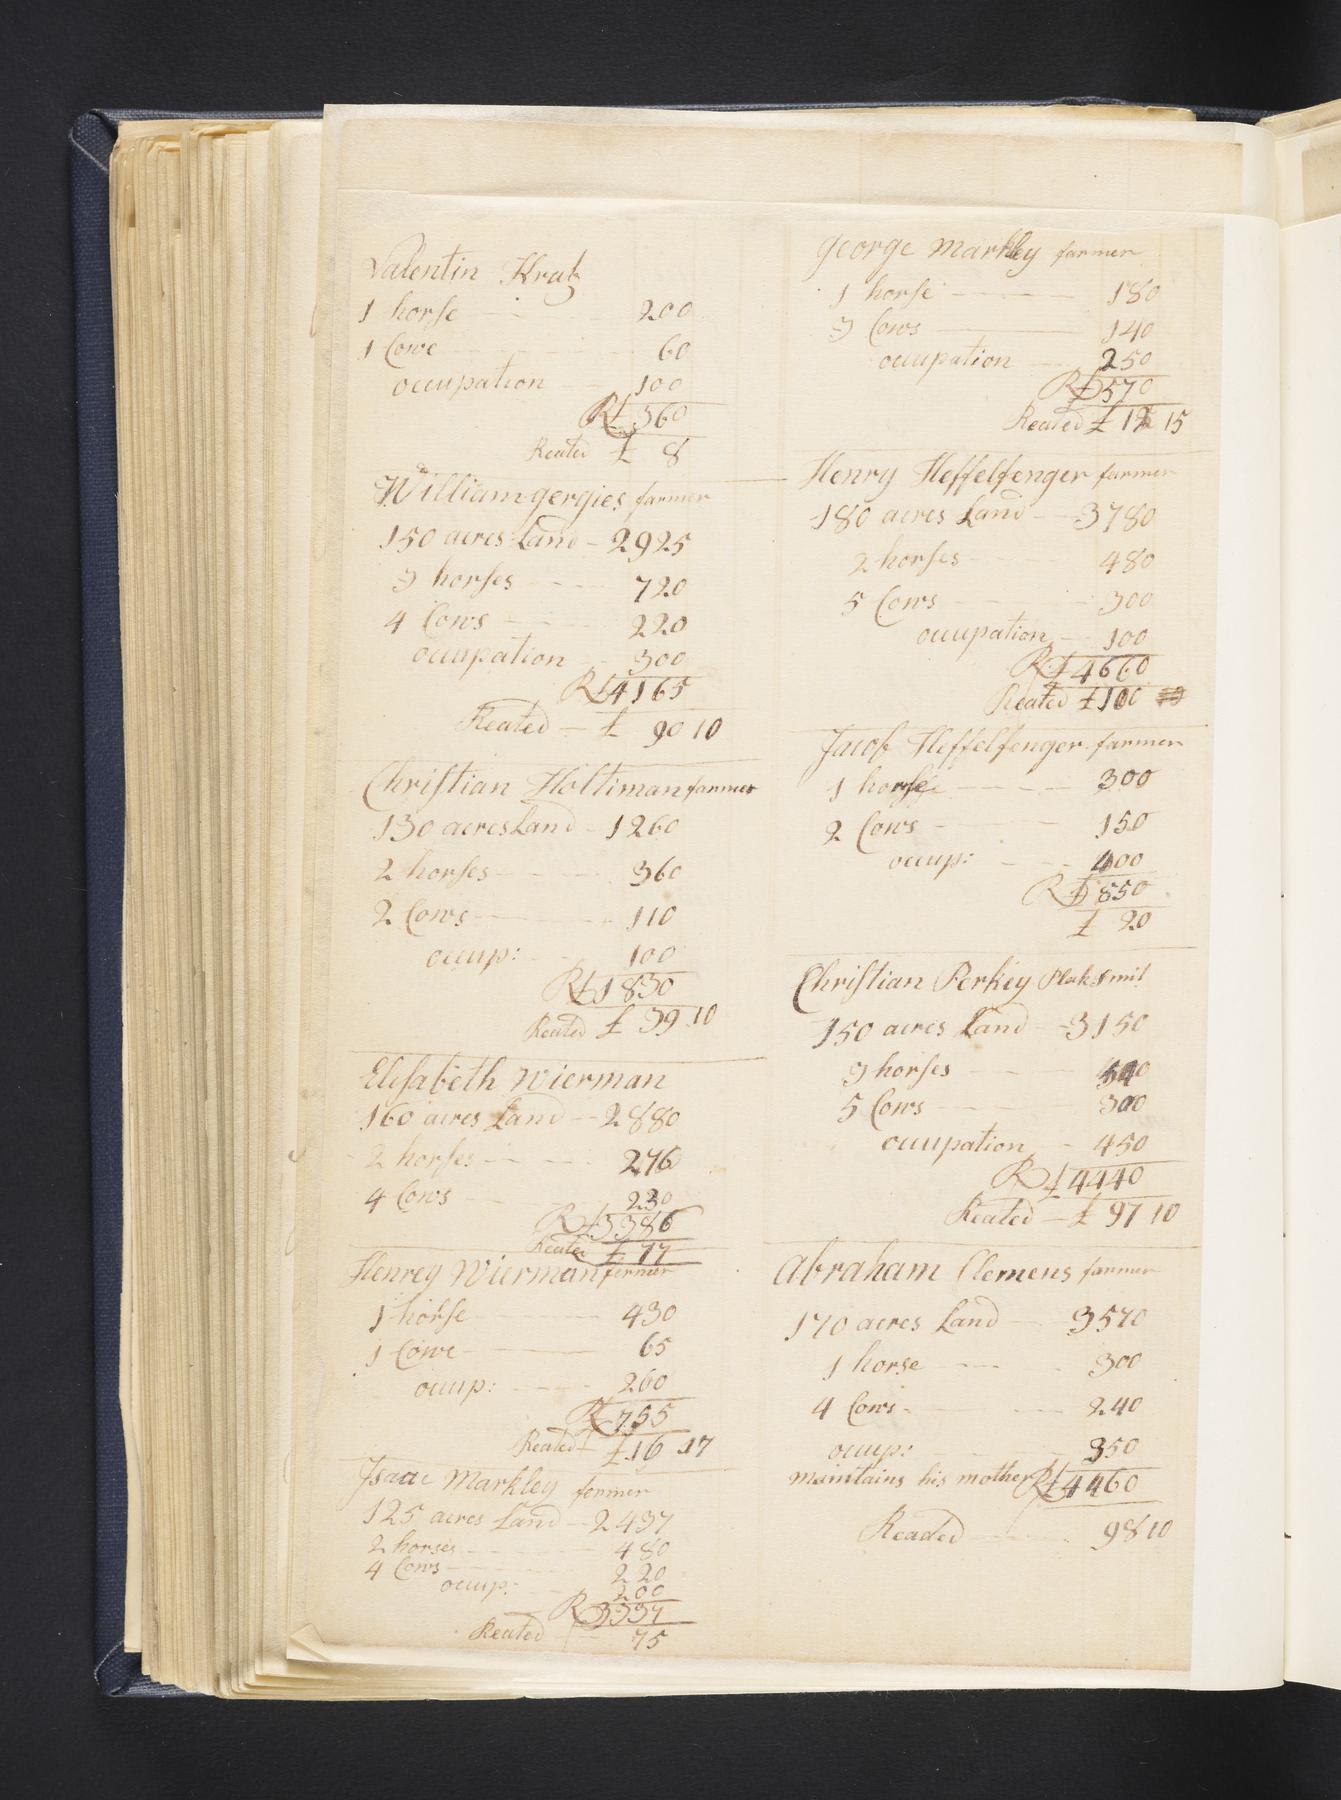 Valentin Kratz
1 horse 200
1 Cowe 60
occupation 100
R £ 360
Reated £ 8
William gergies farmer
150 acres Land 2925
3 horses 720
4 Cows 220
occupation 300
R £ 4165
Reated £ 90 10
Christian Holtiman farmer
130 acres Land 1260
2 horses 360
2 Cows 110
occup: 100
R £ 1830
Reated £ 39 10
Elisabeth Wierman
160 acres Land 2880
2 horses 276
4 Cows 230
R £ 3386
Reated £ 77
Henrey Wierman fermer
1 horse 430
1 Cowe 65
occup: 260
R 755
Reated £ 16 17
Isaac Markley fermer
125 acres Land 2437
2 horses 480
4 Cows 220
occup: 200
R 3337
Reated 75
george Markley farmer
1 horse 180
3 Cows 140
occupation 250
R £ 570
Reated £ 15
Henry Heffelfenger farmer
180 acres Land 3780
2 horses 480
5 Cows 300
occupation 100
R £ 4660
Reated £ 100
Jacob Heffelfenger farmer
1 horse 300
2 Cows 150
occup: 400
R £ 850
£ 20
Christian Perkey Plaksmit
150 acres Land 3150
3 horses 540
5 Cows 300
occupation 450
R £ 4440
Reated £ 97 10
Abraham Clemens farmer
170 acres Land 3570
1 horse 300
4 Cows 240
occup: 350
maintains his mother R £ 4460
Readed 98 10